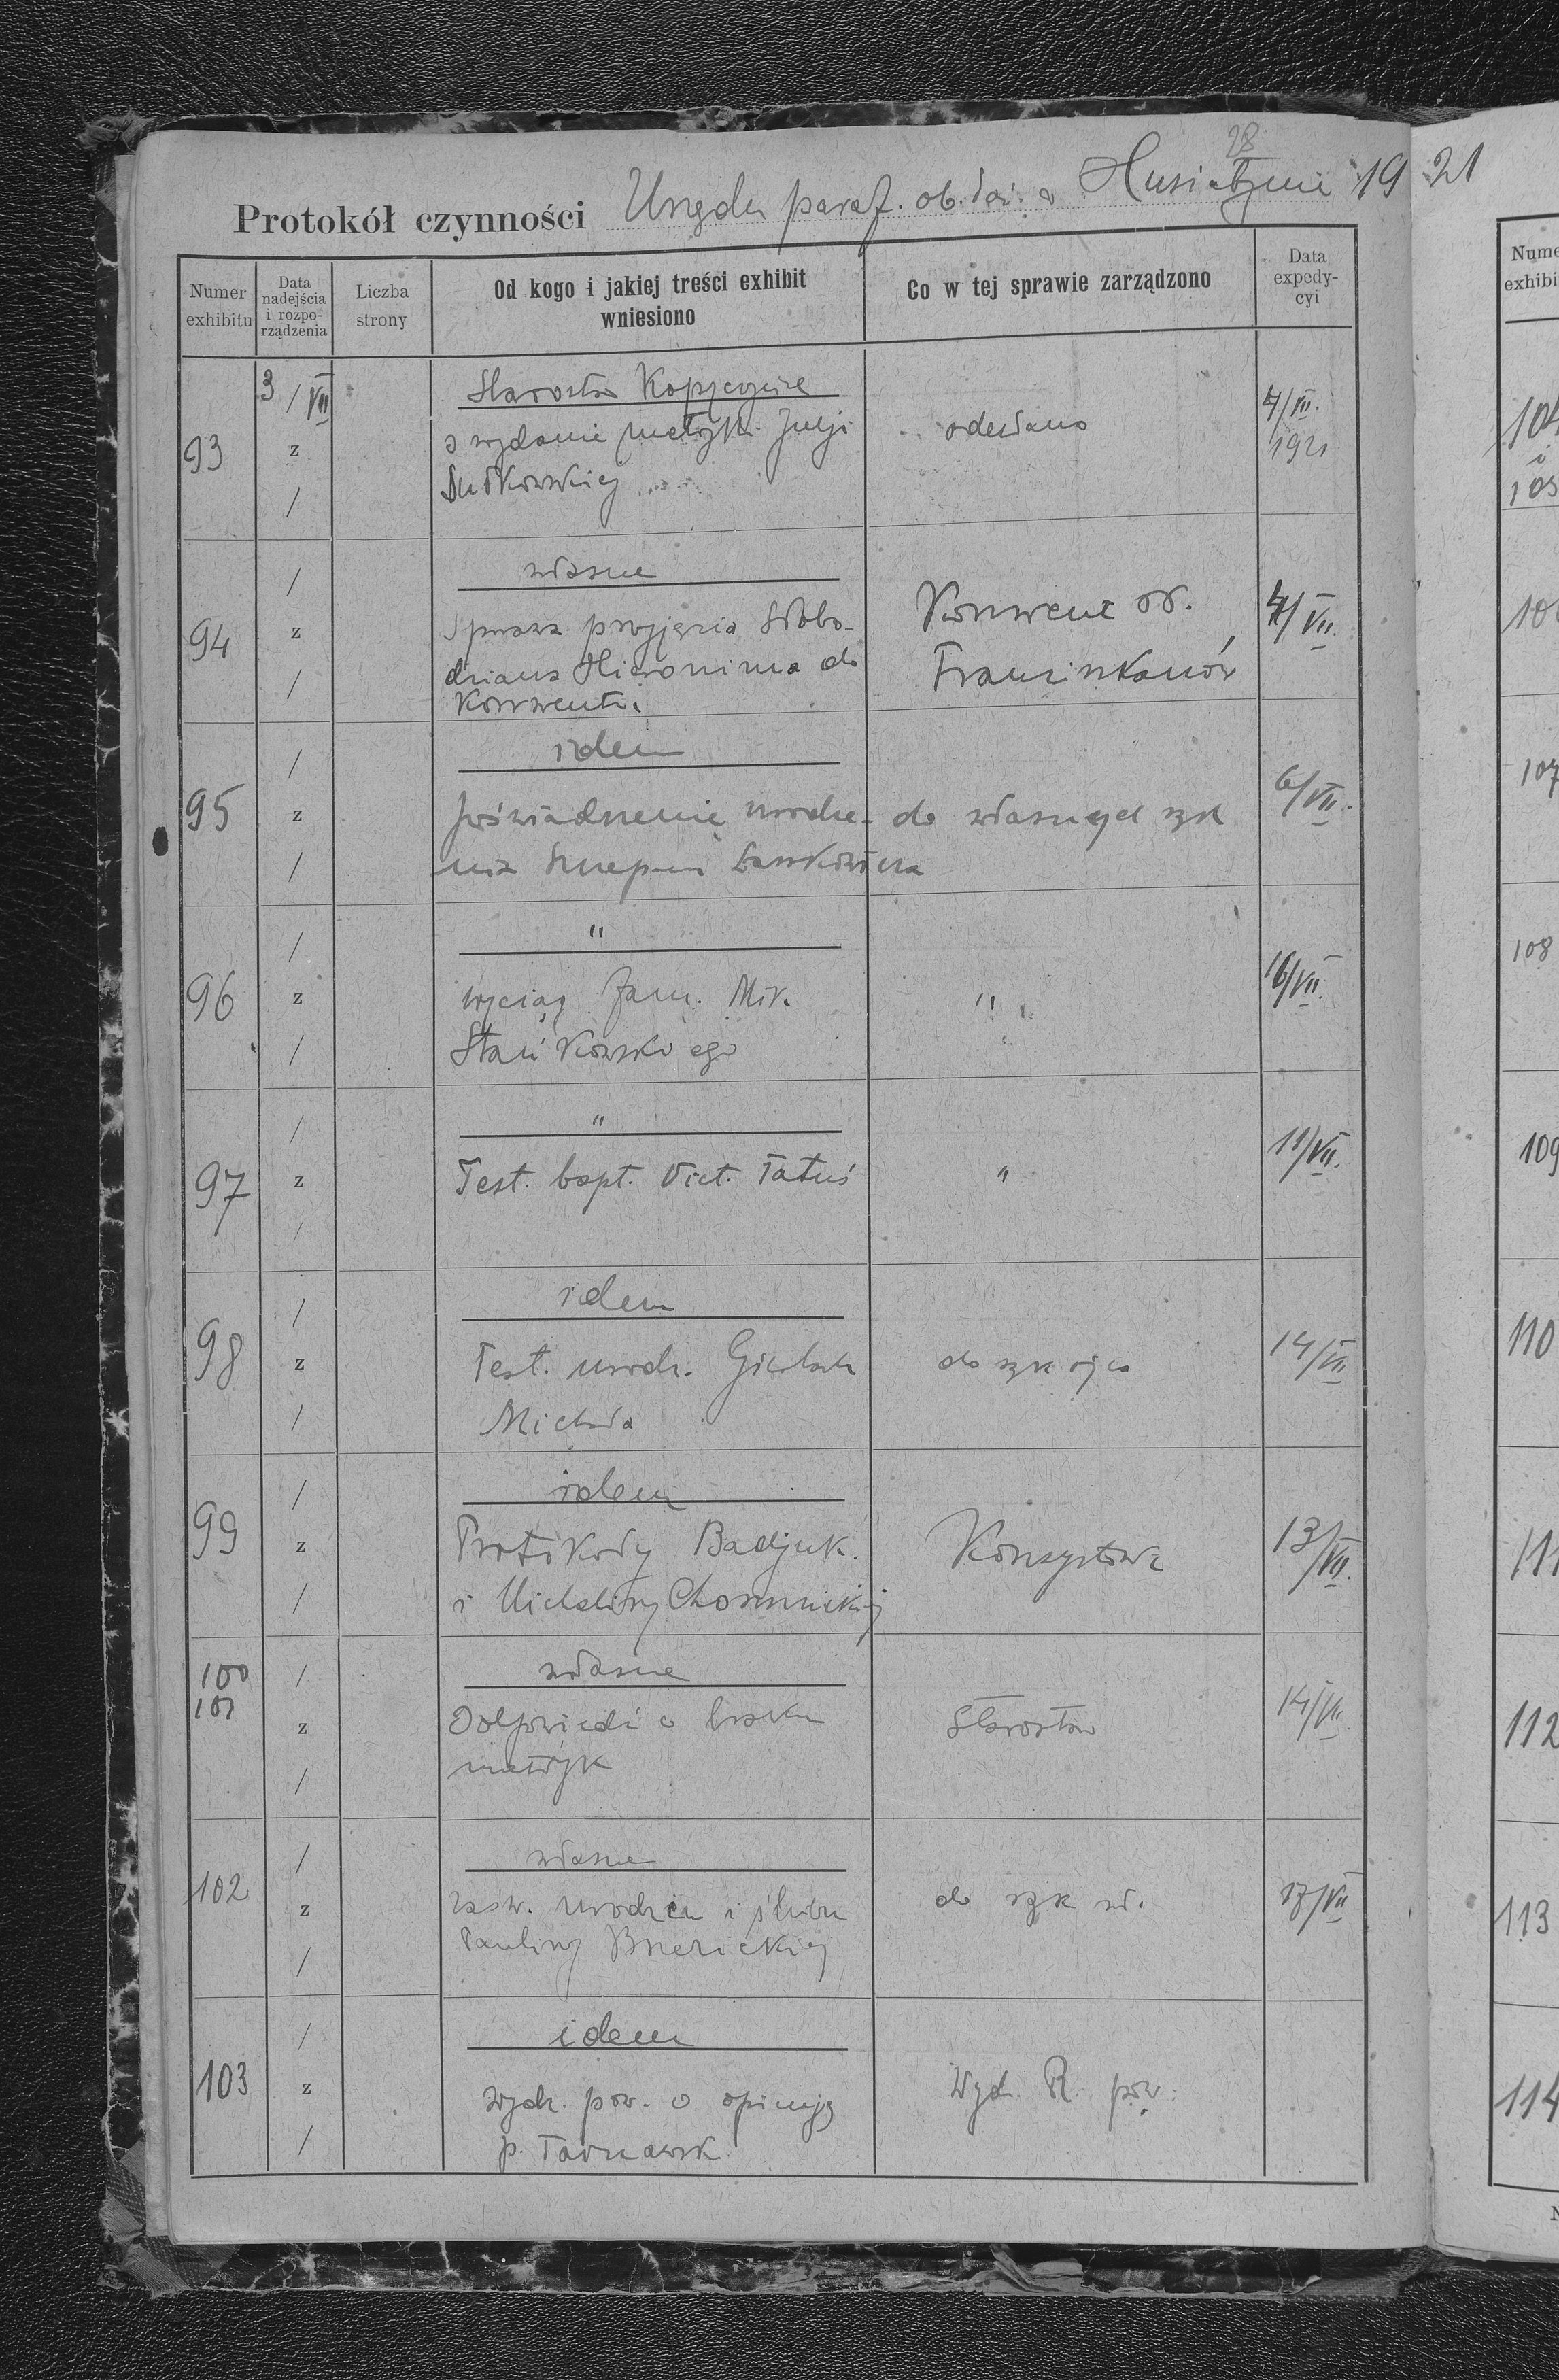 28
Protokół czynności Urzędu paraf. ob. łac. w Husiatynie 1921
Numer exhibitu
Data nadejścia i rozporządzenia
Liczba strony
Od kogo i jakiej treści exhibit wniesiono
Co w tej sprawie zarządzono
Data expedycyi
93
3/VII
z
/
Starostwo Kopyczyńce
o wydanie metryki Julji
Sułkowskiej
odesłano
4/VII.
1921
94
/
z
/
własne
Sprawa przyjęcia Słobo-
dziana Hieronima do
Konwentu
Konwent OO.
Franciszkanów
4/VII.
95
/
z
/
idem
poświadczenie urodze-
nia Szczepana
do własnych rąk
6/VII.
96
/
z
/
"
wyciąg fam. Mik.
Stańkowskiego
"
16/VII.
97
/
z
/
"
Test. bapt. Vict. Tatuś
"
11/VII.
98
/
z
/
idem
Test. urodz.
Michała
do rąk ojca
14/VII
99
/
z
/
idem
Protokoły Badjuk.
i Michaliny Chomnickiej
Konsystorz
13/VII.
100
101
/
z
/
własne
Odpowiedź o braku
metryk
Starostwo
14/VII.
102
/
z
/
własne
zaśw. urodzin i ślubu
Pauliny
do rąk wł.
17/VII
103
/
z
/
idem
wydz. pow. o opinję
p. Tarnawsk
Wydz. R. pow.
Nume
exhibi
104
i
105
10
107
108
109
110
111
112
113
114
N